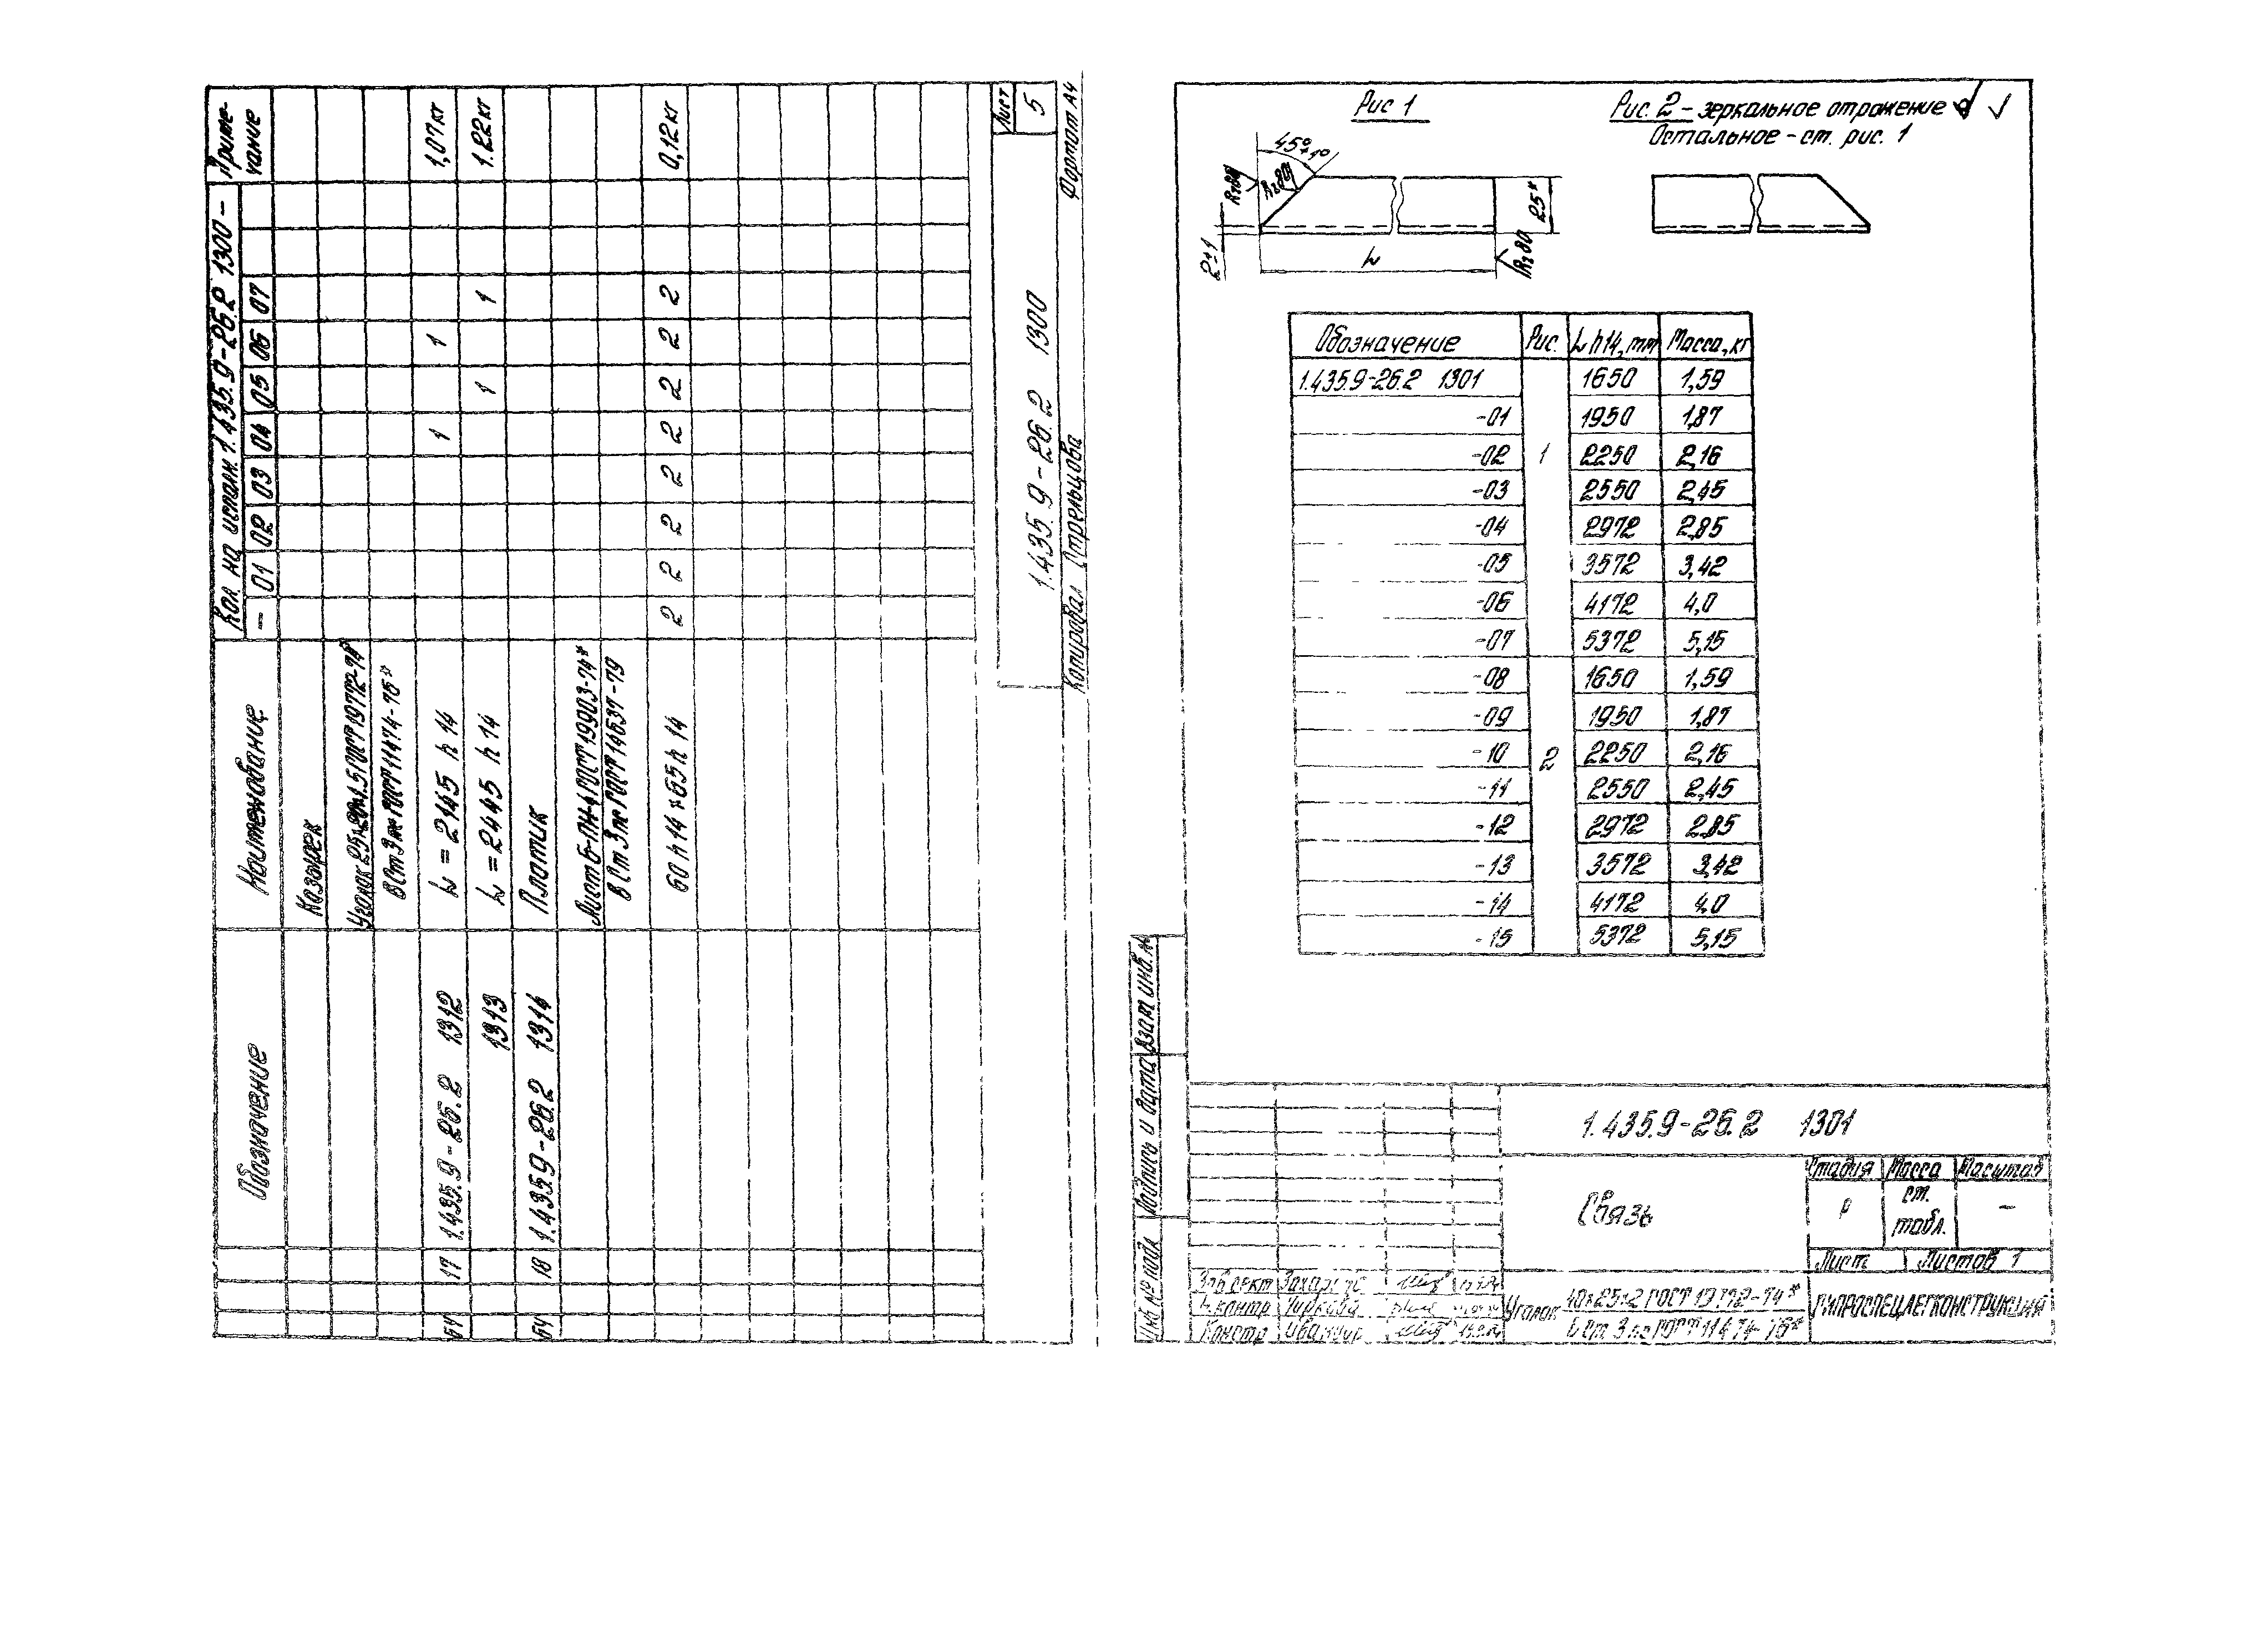 Обозначение
Наименование
Кол. на исполн. 1.435.9-26.2 1300 -
Приме-
чание
- 01 02 03 04 05 06 07
Козырек
Уголок 25×20×1.5 ГОСТ 19772-74*
ВСт3пс ГОСТ 11474-76*
БЧ 17 1.435.9-26.2 1312 L = 2145 h14 1 1 1,07кг
1313 L = 2445 h14 1 1 1.22кг
БЧ 18 1.435.9-26.2 1314 Платик
Лист Б-ПН-4 ГОСТ 19903-74*
ВСт3пс ГОСТ 14637-79
60h14×65h14 2 2 2 2 2 2 2 2 0,12кг
1.435.9-26.2 1300
Лист
5
Копировал Стрельцова
Формат А4
Рис 1
Рис. 2 - зеркальное отражение
Остальное - см. рис. 1
45°±1°
Rz80
Rz80
25*
2±1
L
Rz80
Обозначение Рис. L h14, мм Масса, кг
1.435.9-26.2 1301 1650 1,59
-01 1950 1,87
-02 1 2250 2,16
-03 2550 2,45
-04 2972 2,85
-05 3572 3,42
-06 4172 4,0
-07 5372 5,15
-08 1650 1,59
-09 1950 1,87
-10 2 2250 2,16
-11 2550 2,45
-12 2972 2,85
-13 3572 3,42
-14 4172 4,0
-15 5372 5,15
Взам инв. №
Подпись и дата
Инв № подл
1.435.9-26.2 1301
Связь
Стадия Масса Масштаб
Р см. табл. -
Лист Листов 1
Зав сект
Н.контр
Констр
Уголок 40×25×2 ГОСТ 19772-74*
ВСт 3пс ГОСТ 11474-76*
ГИПРОСПЕЦЛЕГКОНСТРУКЦИЯ